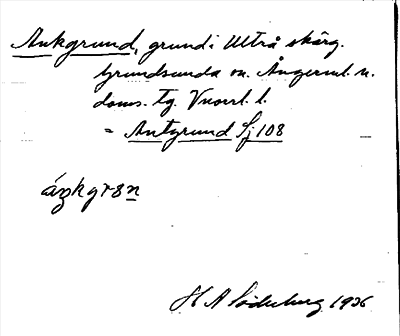 Ankgrund, grund i Ultrå skärg.
Grundsunda sn. Ångerml. n.
doms. tg. Vnorrl. l.
= Antgrund Sj 108
áŋkgrɞn
H A Söderberg 1926